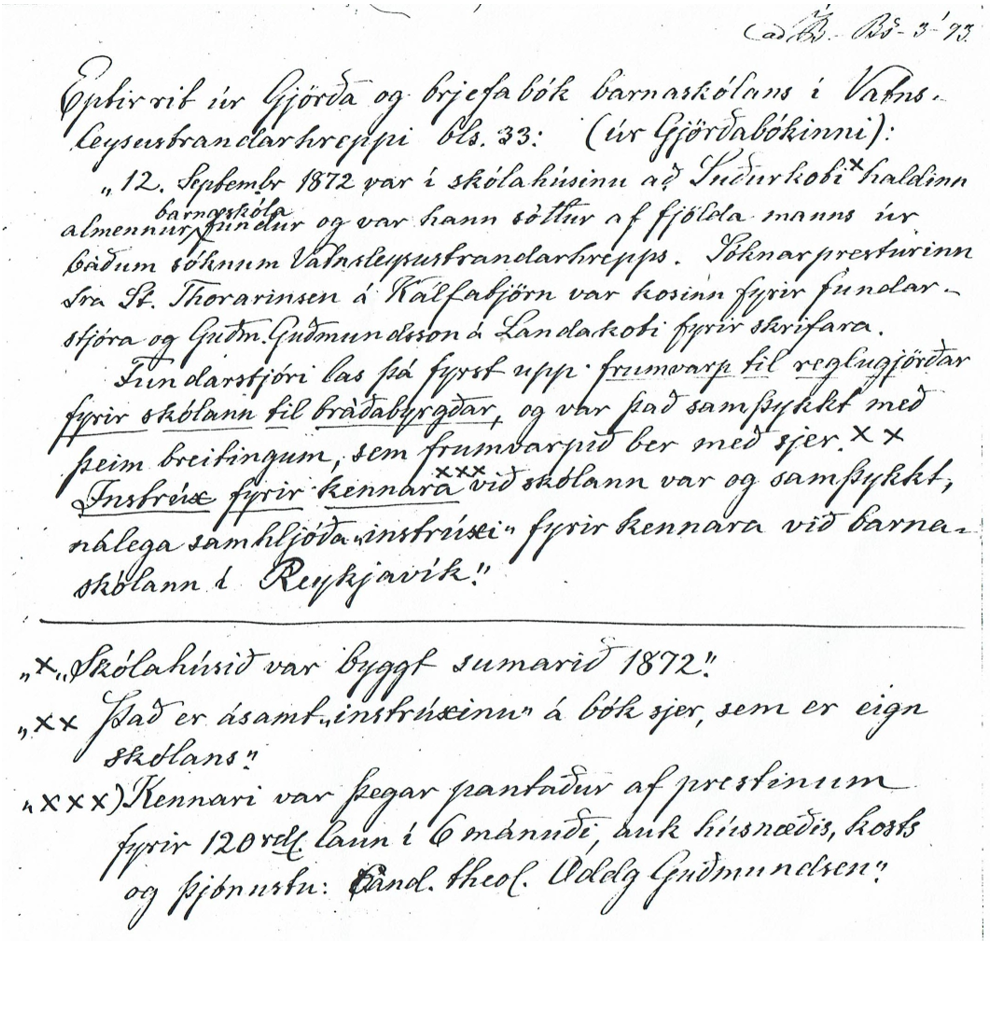 Bs - 3/ '93.
Eptirrit úr Gjörða og brjefabók barnaskólans í Vatns-
leysustrandarhreppi bls. 33: (úr Gjörðabókinni):
„12. Septembr 1872 var í skólahúsinu að Suðurkoti x haldinn
barnaskóla
almennur fundur og var hann sóttur af fjölda manns úr
báðum sóknum Vatnsleysustrandarhrepps. Sóknarpresturinn
Sra St. Thorarinsen á Kálfatjörn var kosinn fyrir fundar-
stjóra og Guðm. Guðmundsson á Landakoti fyrir skrifara.
Fundarstjóri las þá fyrst upp frumvarp til reglugjörðar
fyrir skólann til bráðabyrgðar, og var það samþykkt með
þeim breitingum, sem frumvarpið ber með sjer. x x
Instrúx fyrir kennara xxx við skólann var og samþykkt,
nálega samhljóða „instrúxi“ fyrir kennara við barna-
skólann í Reykjavík.“
„x „Skólahúsið var byggt sumarið 1872.“
„xx Það er ásamt „instrúxinu“ á bók sjer, sem er eign
skólans“
„xxx) Kennari var þegar pantaður af prestinum
fyrir 120 rdl. laun í 6 mánuði, auk húsnæðis, kosts
og þjónustu: Cand. theol. Oddg Guðmundsen“.